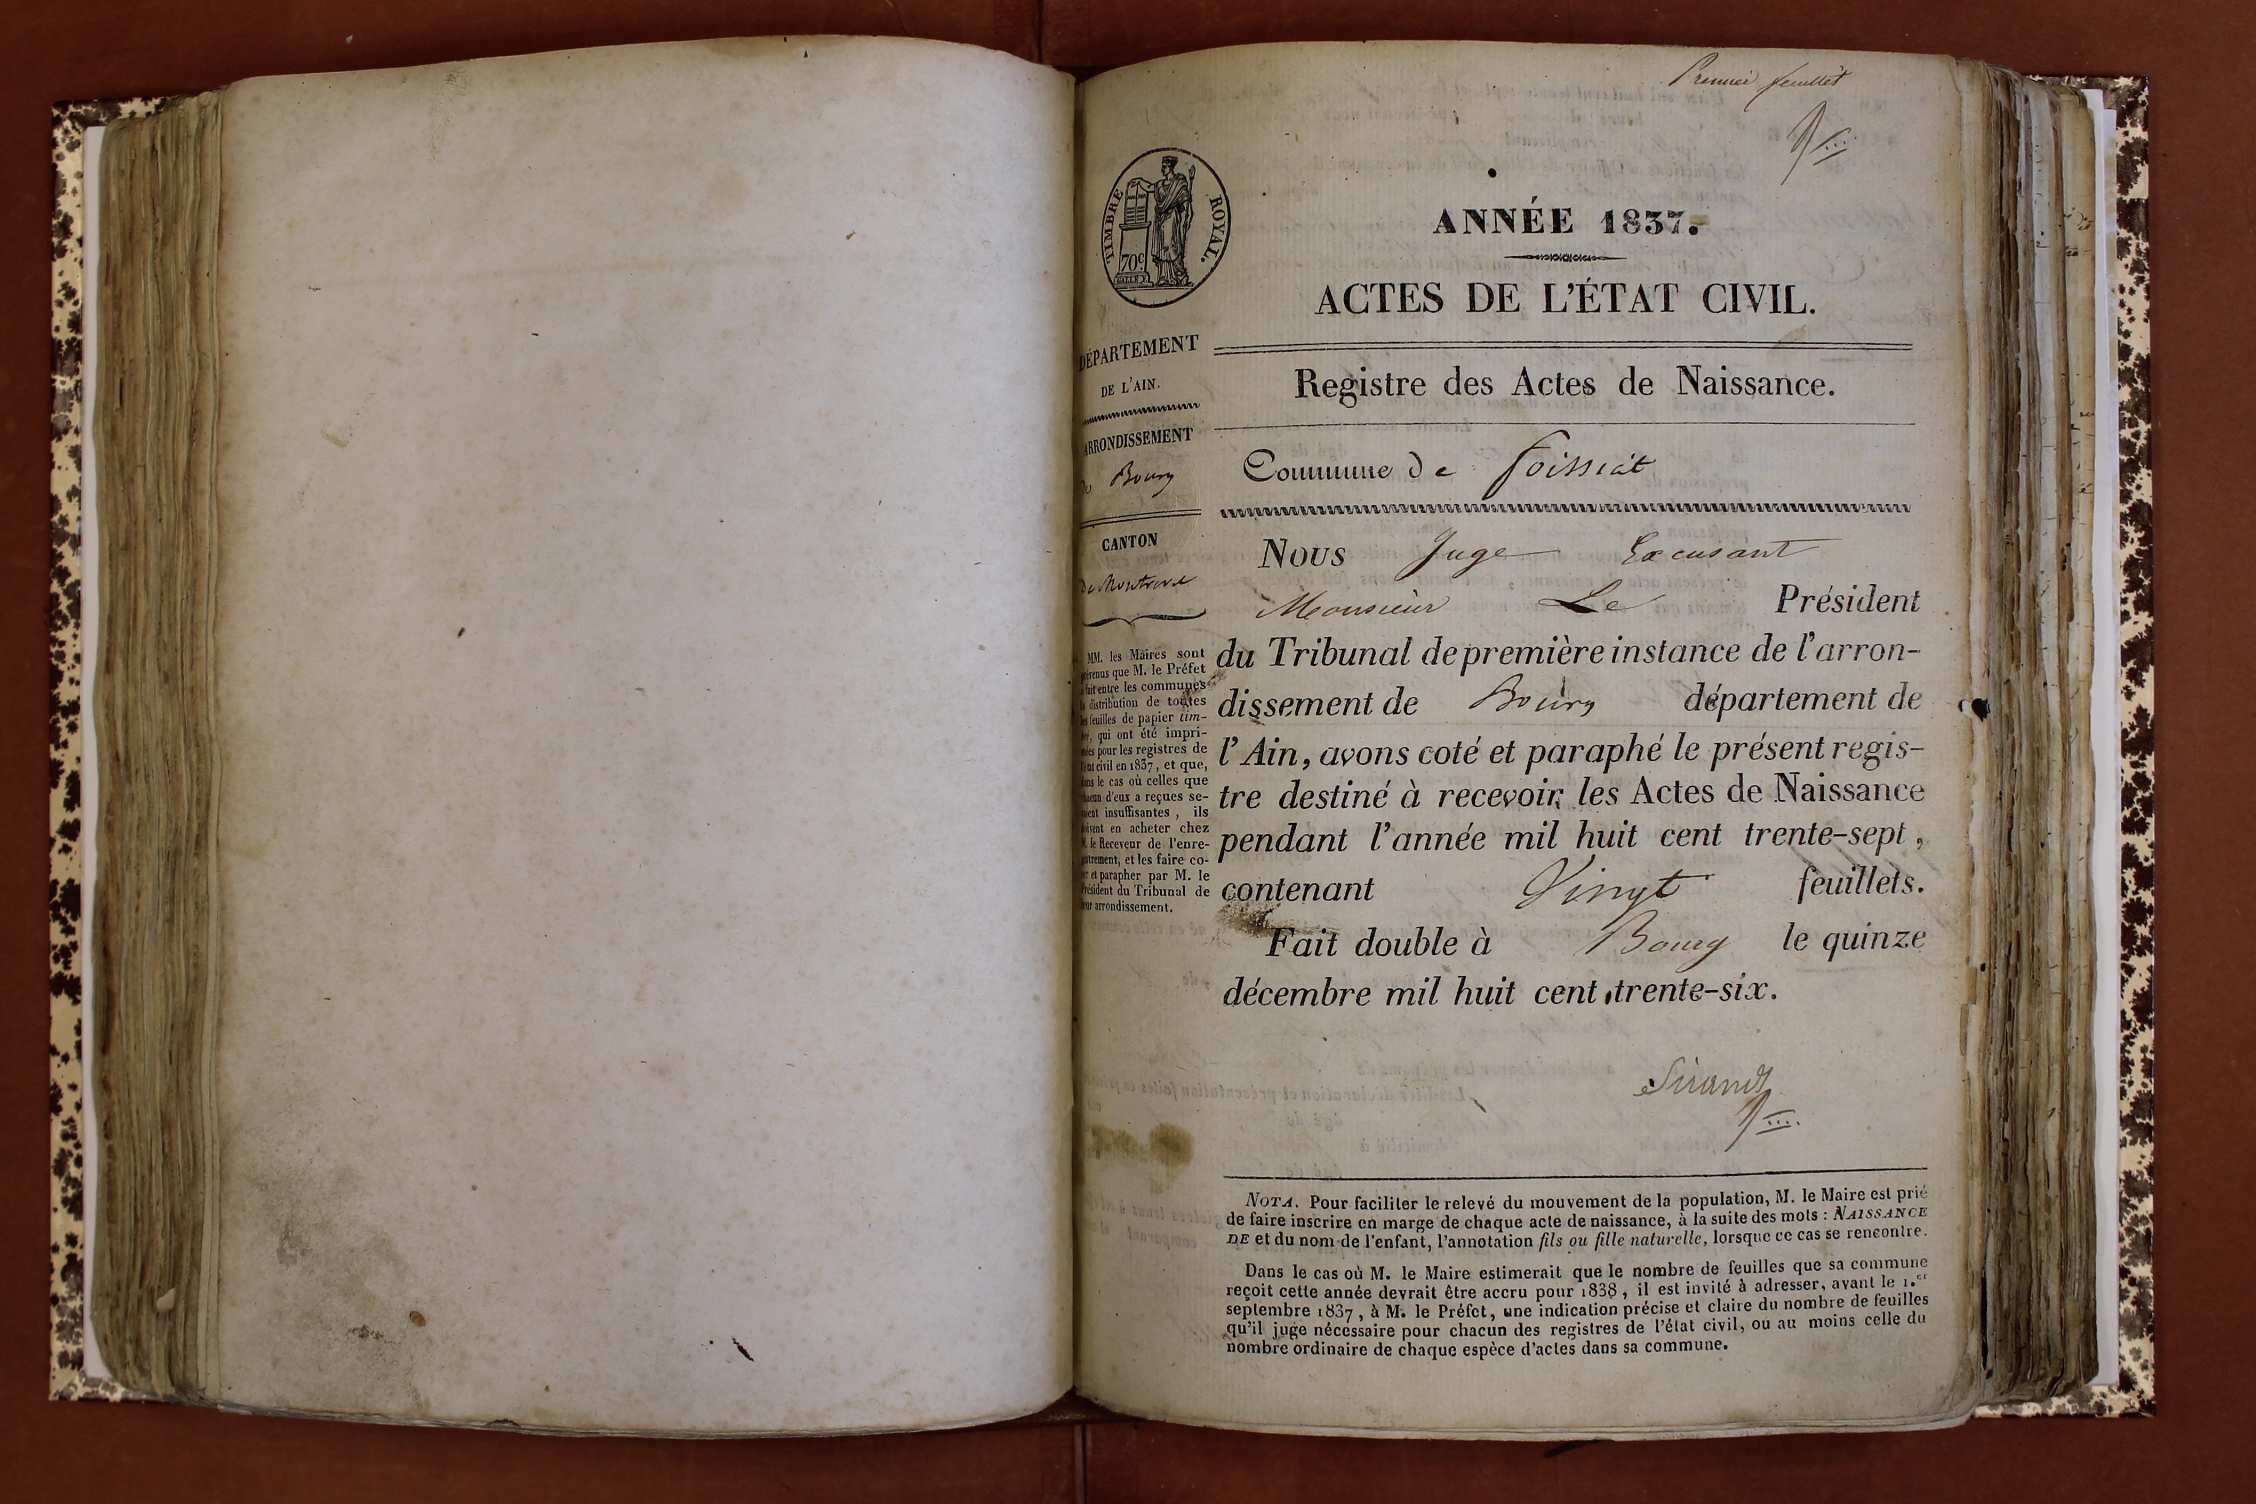 Premier feuillet
TIMBRE ROYAL.
70c
ANNÉE 1837.
ACTES DE L'ÉTAT CIVIL.
DÉPARTEMENT
DE L'AIN.
ARRONDISSEMENT
de Bourg
CANTON
De Montrevel
MM. les Maires sont
prévenus que M. le Préfet
a fait entre les communes
la distribution de toutes
les feuilles de papier tim-
bré, qui ont été impri-
mées pour les registres de
l'état civil en 1837, et que,
dans le cas où celles que
chacun d'eux a reçues se-
raient insuffisantes, ils
doivent en acheter chez
M. le Receveur de l'enre-
gistrement, et les faire co-
ter et parapher par M. le
Président du Tribunal de
leur arrondissement.
Registre des Actes de Naissance.
Commune de foissiat
Nous Juge Excusant
Monsieur Le Président
du Tribunal de première instance de l'arron-
dissement de Bourg département de
l'Ain, avons coté et paraphé le présent regis-
tre destiné à recevoir les Actes de Naissance
pendant l'année mil huit cent trente-sept,
contenant Vingt feuillets.
Fait double à Bourg le quinze
décembre mil huit cent trente-six.
Sirand
NOTA. Pour faciliter le relevé du mouvement de la population, M. le Maire est prié
de faire inscrire en marge de chaque acte de naissance, à la suite des mots : NAISSANCE
DE et du nom de l'enfant, l'annotation fils ou fille naturelle, lorsque ce cas se rencontre.
Dans le cas où M. le Maire estimerait que le nombre de feuilles que sa commune
reçoit cette année devrait être accru pour 1838, il est invité à adresser, avant le 1.er
septembre 1837, à M. le Préfet, une indication précise et claire du nombre de feuilles
qu'il juge nécessaire pour chacun des registres de l'état civil, ou au moins celle du
nombre ordinaire de chaque espèce d'actes dans sa commune.